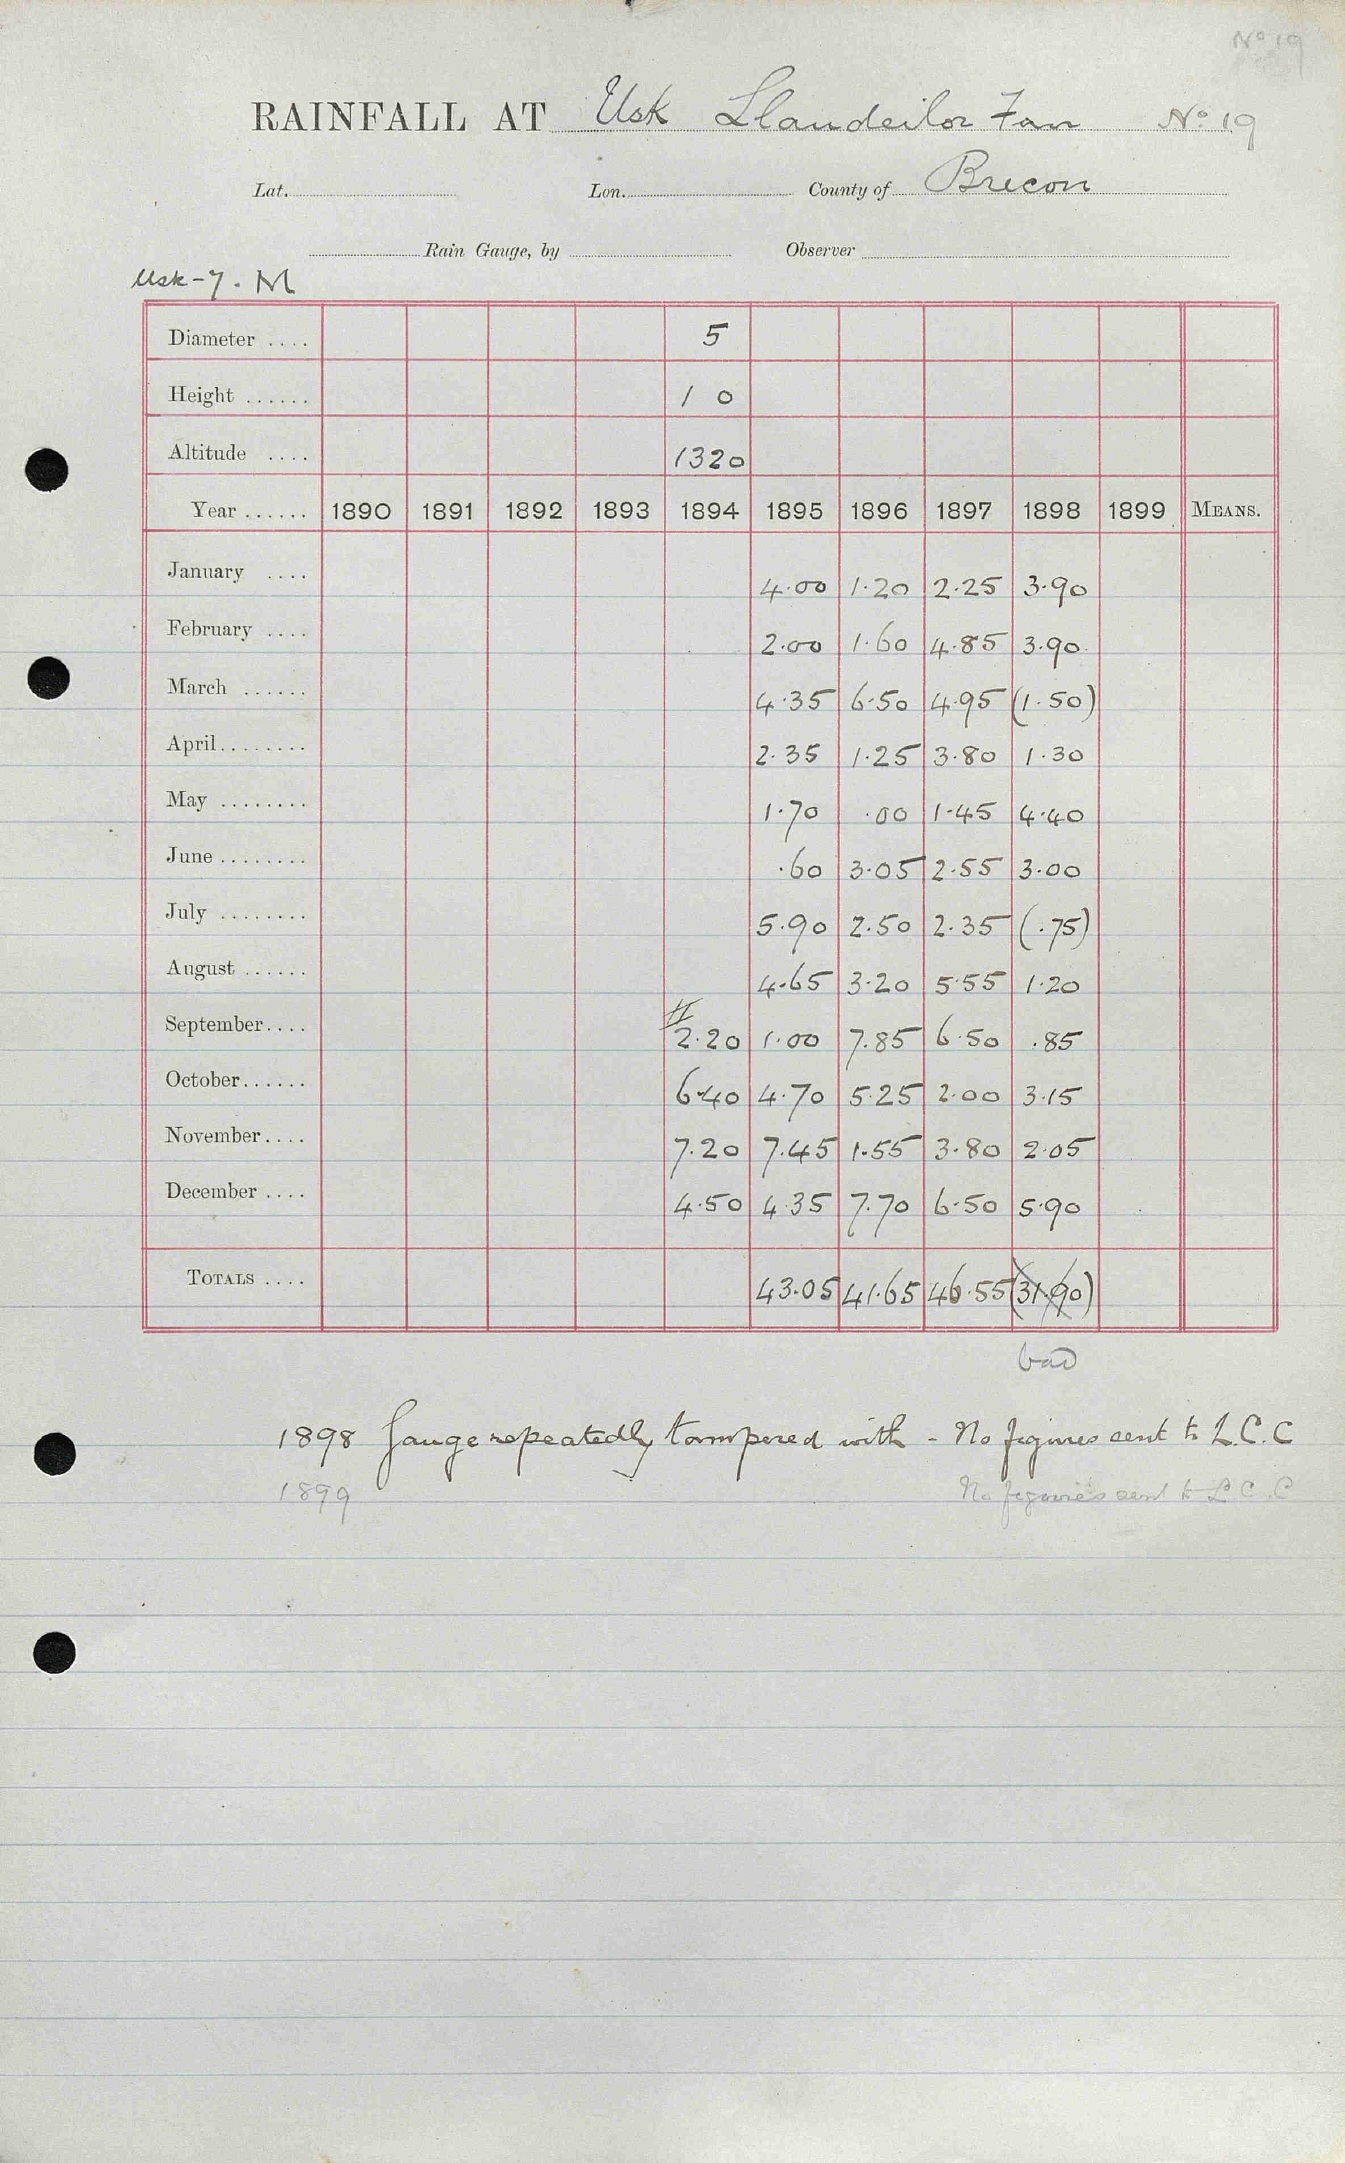 No 19
RAINFALL AT Usk Llandeilor Fan No 19
Lat. Lon. County of Brecon
Rain Gauge, by Observer
Usk-7. M
Diameter .... 5
Height ...... 1 0
Altitude .... 1320
Year ...... 1890 1891 1892 1893 1894 1895 1896 1897 1898 1899 MEANS.
January .... 4.00 1.20 2.25 3.90
February .... 2.00 1.60 4.85 3.90
March ...... 4.35 6.50 4.95 (1.50)
April........ 2.35 1.25 3.80 1.30
May ........ 1.70 .00 1.45 4.40
June ........ .60 3.05 2.55 3.00
July ........ 5.90 2.50 2.35 (.75)
August ...... 4.65 3.20 5.55 1.20
September.... 2.20 1.00 7.85 6.50 .85
October...... 6.40 4.70 5.25 2.00 3.15
November.... 7.20 7.45 1.55 3.80 2.05
December .... 4.50 4.35 7.70 6.50 5.90
TOTALS .... 43.05 41.65 46.55 (31.90)
bad
1898 Gauge repeatedly tampered with - No figures sent to L.C.C
1899 No figures sent to L.C.C